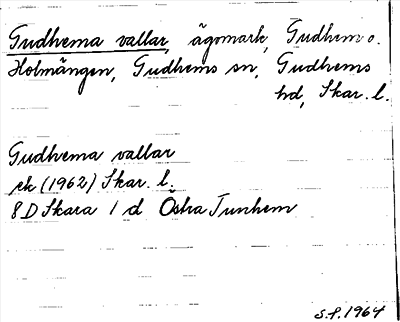 Gudhema vallar, ägomark, Gudhem o.
Holmängen, Gudhems sn, Gudhems
hd, Skar. l.
Gudhema vallar
ek (1962) Skar. l.
8 D Skara 1 d Östra Tunhem
S.F. 1964